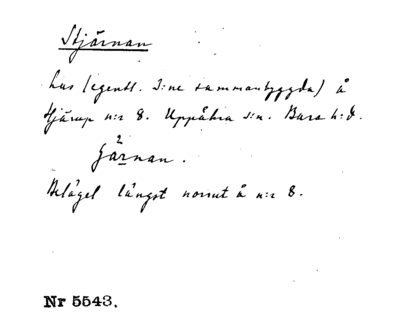 Stjärnan
hus (egentl. 3:ne sammanbyggda) å
Hjärup n:r 8. Uppåkra s:n. Bara h:d.
Belägel längst norrut å n:r 8.
Nr 5543.